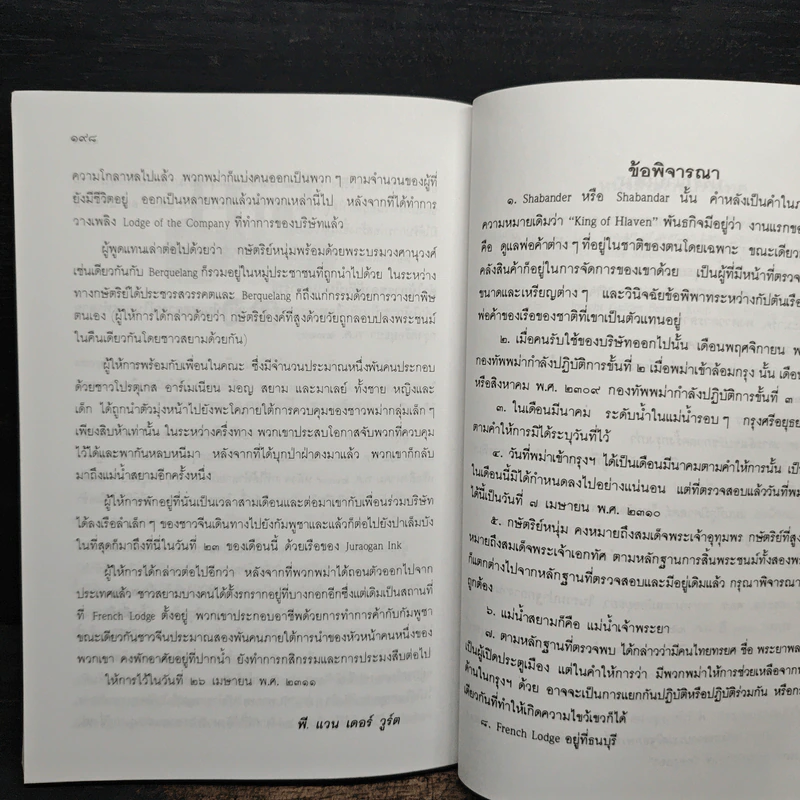 ๑๙๘
ความโกลาหลไปแล้ว พวกพม่าก็แบ่งคนออกเป็นพวก ๆ ตามจำนวนของผู้ที่
ยังมีชีวิตอยู่ ออกเป็นหลายพวกแล้วนำพวกเหล่านี้ไป หลังจากที่ได้ทำการ
วางเพลิง Lodge of the Company ที่ทำการของบริษัทแล้ว
ผู้พูดแทนเล่าต่อไปด้วยว่า กษัตริย์หนุ่มพร้อมด้วยพระบรมวงศานุวงศ์
เช่นเดียวกันกับ Berquelang ก็รวมอยู่ในหมู่ประชาชนที่ถูกนำไปด้วย ในระหว่าง
ทางกษัตริย์ได้ประชวรสวรรคตและ Berquelang ก็ถึงแก่กรรมด้วยการวางยาพิษ
ตนเอง (ผู้ให้การได้กล่าวด้วยว่า กษัตริย์องค์ที่สูงด้วยวัยถูกลอบปลงพระชนม์
ในคืนเดียวกันโดยชาวสยามด้วยกัน)
ผู้ให้การพร้อมกับเพื่อนในคณะ ซึ่งมีจำนวนประมาณหนึ่งพันคนประกอบ
ด้วยชาวโปรตุเกส อาร์เมเนียน มอญ สยาม และมาเลย์ ทั้งชาย หญิงและ
เด็ก ได้ถูกนำตัวมุ่งหน้าไปยังพะโคภายใต้การควบคุมของชาวพม่ากลุ่มเล็ก ๆ
เพียงสิบห้าเท่านั้น ในระหว่างครึ่งทาง พวกเขาประสบโอกาสจับพวกที่ควบคุม
ไว้ได้และพากันหลบหนีมา หลังจากที่ได้บุกป่าฝ่าดงมาแล้ว พวกเขาก็กลับ
มาถึงแม่น้ำสยามอีกครั้งหนึ่ง
ผู้ให้การพักอยู่ที่นั่นเป็นเวลาสามเดือนและต่อมาเขากับเพื่อนร่วมบริษัท
ได้ลงเรือลำเล็ก ๆ ของชาวจีนเดินทางไปยังกัมพูชาและแล้วก็ต่อไปยังปาเล็มบัง
ในที่สุดก็มาถึงที่นี่ในวันที่ ๒๓ ของเดือนนี้ ด้วยเรือของ Juraogan Ink
ผู้ให้การได้กล่าวต่อไปอีกว่า หลังจากที่พวกพม่าได้ถอนตัวออกไปจาก
ประเทศแล้ว ชาวสยามบางคนได้ตั้งรกรากอยู่ที่บางกอกอีกซึ่งแต่เดิมเป็นสถานที่
ที่ French Lodge ตั้งอยู่ พวกเขาประกอบอาชีพด้วยการทำการค้ากับกัมพูชา
ขณะเดียวกันชาวจีนประมาณสองพันคนภายใต้การนำของหัวหน้าคนหนึ่งของ
พวกเขา คงพักอาศัยอยู่ที่ปากน้ำ ยังทำการกสิกรรมและการประมงสืบต่อไป
ให้การไว้ในวันที่ ๒๖ เมษายน พ.ศ. ๒๓๑๑
พี. แวน เดอร์ วูร์ต
ข้อพิจารณา
๑. Shabander หรือ Shabandar นั้น คำหลังเป็นคำในภ
ความหมายเดิมว่า “King of Hlaven” พันธกิจมีอยู่ว่า งานแรกขอ
คือ ดูแลพ่อค้าต่าง ๆ ที่อยู่ในชาติของตนโดยเฉพาะ ขณะเดียว
คลังสินค้าก็อยู่ในการจัดการของเขาด้วย เป็นผู้ที่มีหน้าที่ตรวจ
ขนาดและเหรียญต่าง ๆ และวินิจฉัยข้อพิพาทระหว่างกัปตันเรือ
พ่อค้าของเรือของชาติที่เขาเป็นตัวแทนอยู่
๒. เมื่อคนรับใช้ของบริษัทออกไปนั้น เดือนพฤศจิกายน พ
กองทัพพม่ากำลังปฏิบัติการขั้นที่ ๒ เมื่อพม่าเข้าล้อมกรุง นั้น เดือน
หรือสิงหาคม พ.ศ. ๒๓๐๙ กองทัพพม่ากำลังปฏิบัติการขั้นที่ ๓
๓. ในเดือนมีนาคม ระดับน้ำในแม่น้ำรอบ ๆ กรุงศรีอยุธย
ตามคำให้การมิได้ระบุวันที่ไว้
๔. วันที่พม่าเข้ากรุงฯ ได้เป็นเดือนมีนาคมตามคำให้การนั้น เป็
ในเดือนนี้มิได้กำหนดลงไปอย่างแน่นอน แต่ที่ตรวจสอบแล้ววันที่พม
ได้นี้เป็นวันที่ ๗ เมษายน พ.ศ. ๒๓๑๐
๕. กษัตริย์หนุ่ม คงหมายถึงสมเด็จพระเจ้าอุทุมพร กษัตริย์ที่สูง
หมายถึงสมเด็จพระเจ้าเอกทัศ ตามหลักฐานการสิ้นพระชนม์ทั้งสองพร
ก็แตกต่างไปจากหลักฐานที่ตรวจสอบและมีอยู่เดิมแล้ว กรุณาพิจารณา
ถูกต้อง
๖. แม่น้ำสยามก็คือ แม่น้ำเจ้าพระยา
๗. ตามหลักฐานที่ตรวจพบ ได้กล่าวว่ามีคนไทยทรยศ ชื่อ พระยาพล
เป็นผู้เปิดประตูเมือง แต่ในคำให้การว่า มีพวกพม่าให้การช่วยเหลือจากท
ด้านในกรุงฯ ด้วย อาจจะเป็นการแยกกันปฏิบัติหรือปฏิบัติร่วมกัน หรือกา
เดียวกันที่ทำให้เกิดความไขว้เขวก็ได้
๘. French Lodge อยู่ที่ธนบุรี